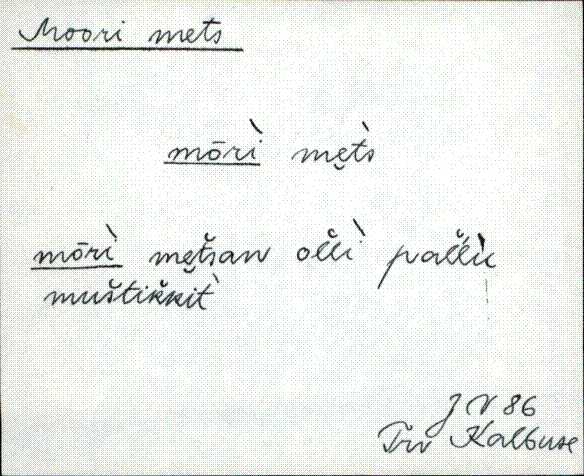 Moori mets
mōrì me̬t̀s
mōrì me̬t̆san ol̆l̆ì pal̆l̆ù
mus̆tik̆kit̀
J V 86
Trv Kalbuse